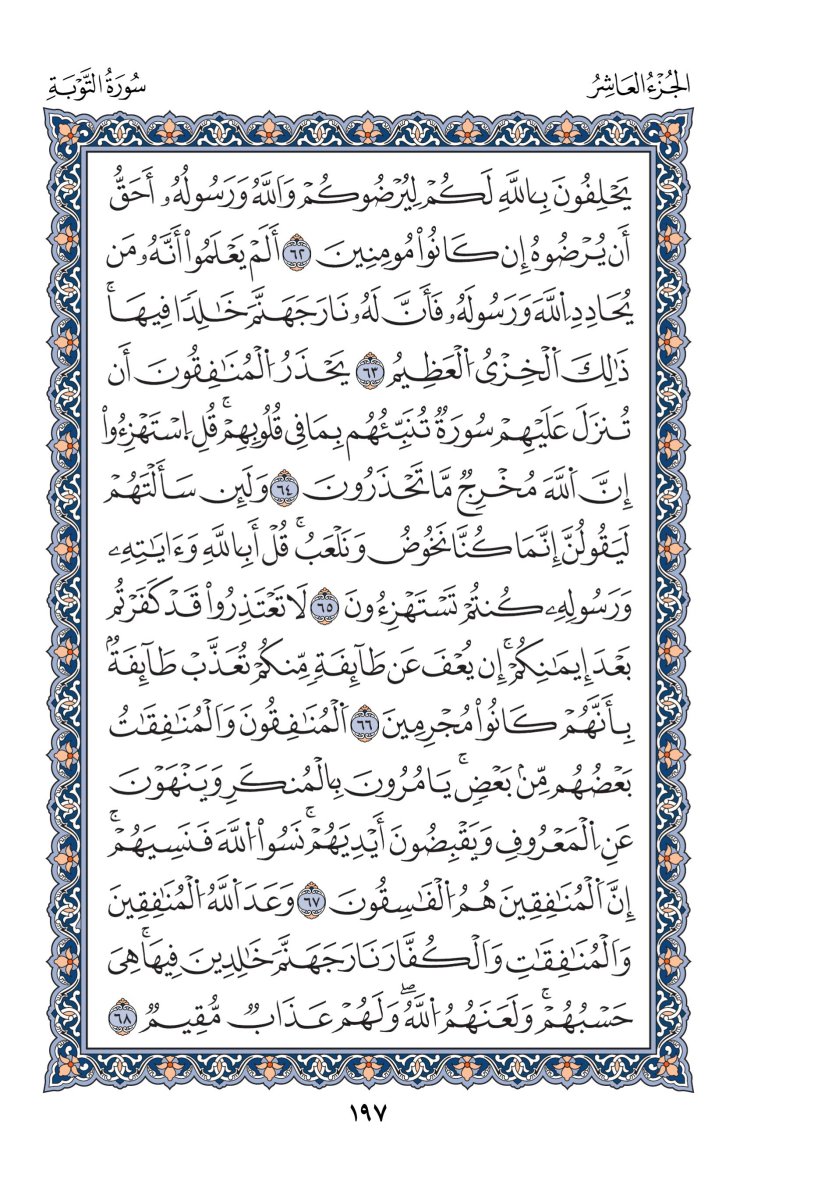 الجُزْءُ العَاشِرُ
سُورَةُ التَّوْبَةِ
يَحْلِفُونَ بِاللَّهِ لَكُمْ لِيُرْضُوكُمْ وَاللَّهُ وَرَسُولُهُۥ أَحَقُّ
أَن يُرْضُوهُ إِن كَانُواْ مُومِنِينَ ٦٢ أَلَمْ يَعْلَمُواْ أَنَّهُۥ مَن
يُحَادِدِ اِللَّهَ وَرَسُولَهُۥ فَأَنَّ لَهُۥ نَارَ جَهَنَّمَ خَٰلِدًا فِيهَاۚ
ذَٰلِكَ اَلْخِزْىُ اُلْعَظِيمُ ٦٣ يَحْذَرُ اُلْمُنَٰفِقُونَ أَن
تُنزَلَ عَلَيْهِمْ سُورَةٌ تُنَبِّئُهُم بِمَا فِى قُلُوبِهِمْۚ قُلِ اِسْتَهْزِءُواْ
إِنَّ اَللَّهَ مُخْرِجٌ مَّا تَحْذَرُونَ ٦٤ وَلَئِن سَأَلْتَهُمْ
لَيَقُولُنَّ إِنَّمَا كُنَّا نَخُوضُ وَنَلْعَبُۚ قُلْ أَبِاللَّهِ وَءَايَٰتِهِۦ
وَرَسُولِهِۦ كُنتُمْ تَسْتَهْزِءُونَ ٦٥ لَا تَعْتَذِرُواْ قَدْ كَفَرْتُم
بَعْدَ إِيمَٰنِكُمْۚ إِن يُعْفَ عَن طَآئِفَةٍ مِّنكُمْ تُعَذَّبْ طَآئِفَةٌۢ
بِأَنَّهُمْ كَانُواْ مُجْرِمِينَ ٦٦ اَلْمُنَٰفِقُونَ وَالْمُنَٰفِقَٰتُ
بَعْضُهُم مِّنۢ بَعْضٍۚ يَامُرُونَ بِالْمُنكَرِ وَيَنْهَوْنَ
عَنِ اِلْمَعْرُوفِ وَيَقْبِضُونَ أَيْدِيَهُمْۚ نَسُواْ اُللَّهَ فَنَسِيَهُمْۚ
إِنَّ اَلْمُنَٰفِقِينَ هُمُ اُلْفَٰسِقُونَ ٦٧ وَعَدَ اَللَّهُ اُلْمُنَٰفِقِينَ
وَالْمُنَٰفِقَٰتِ وَالْكُفَّارَ نَارَ جَهَنَّمَ خَٰلِدِينَ فِيهَاۚ هِىَ
حَسْبُهُمْۚ وَلَعَنَهُمُ اُللَّهُۖ وَلَهُمْ عَذَابٌ مُّقِيمٌ ٦٨
١٩٧